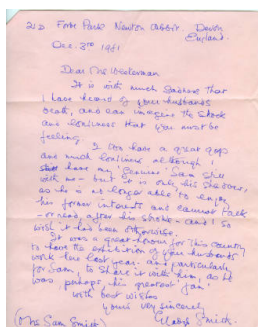 Park Newton Abbot. Devon
England.
Dec. 3rd 1981
Dear Mrs
It is with much sadness that
I have heard of your husbands
death, and can imagine the shock
and loneliness that you must be
feeling.
I too have a great gap
and much loneliness although I
still have my Sam
with me - but it is only his shadow,
as he is no longer able to enjoy
his former interests and cannot talk
- or read, after his stroke - and I so
wish it had been otherwise.
It was a great honour for this country
to have the exhibition of your husbands
work here last year. and particularly
for Sam, to share it with him, as he
was perhaps, his greatest 'fan'
with best wishes
yours very sincerely,
Gladys Smith.
(Mrs Sam Smith)